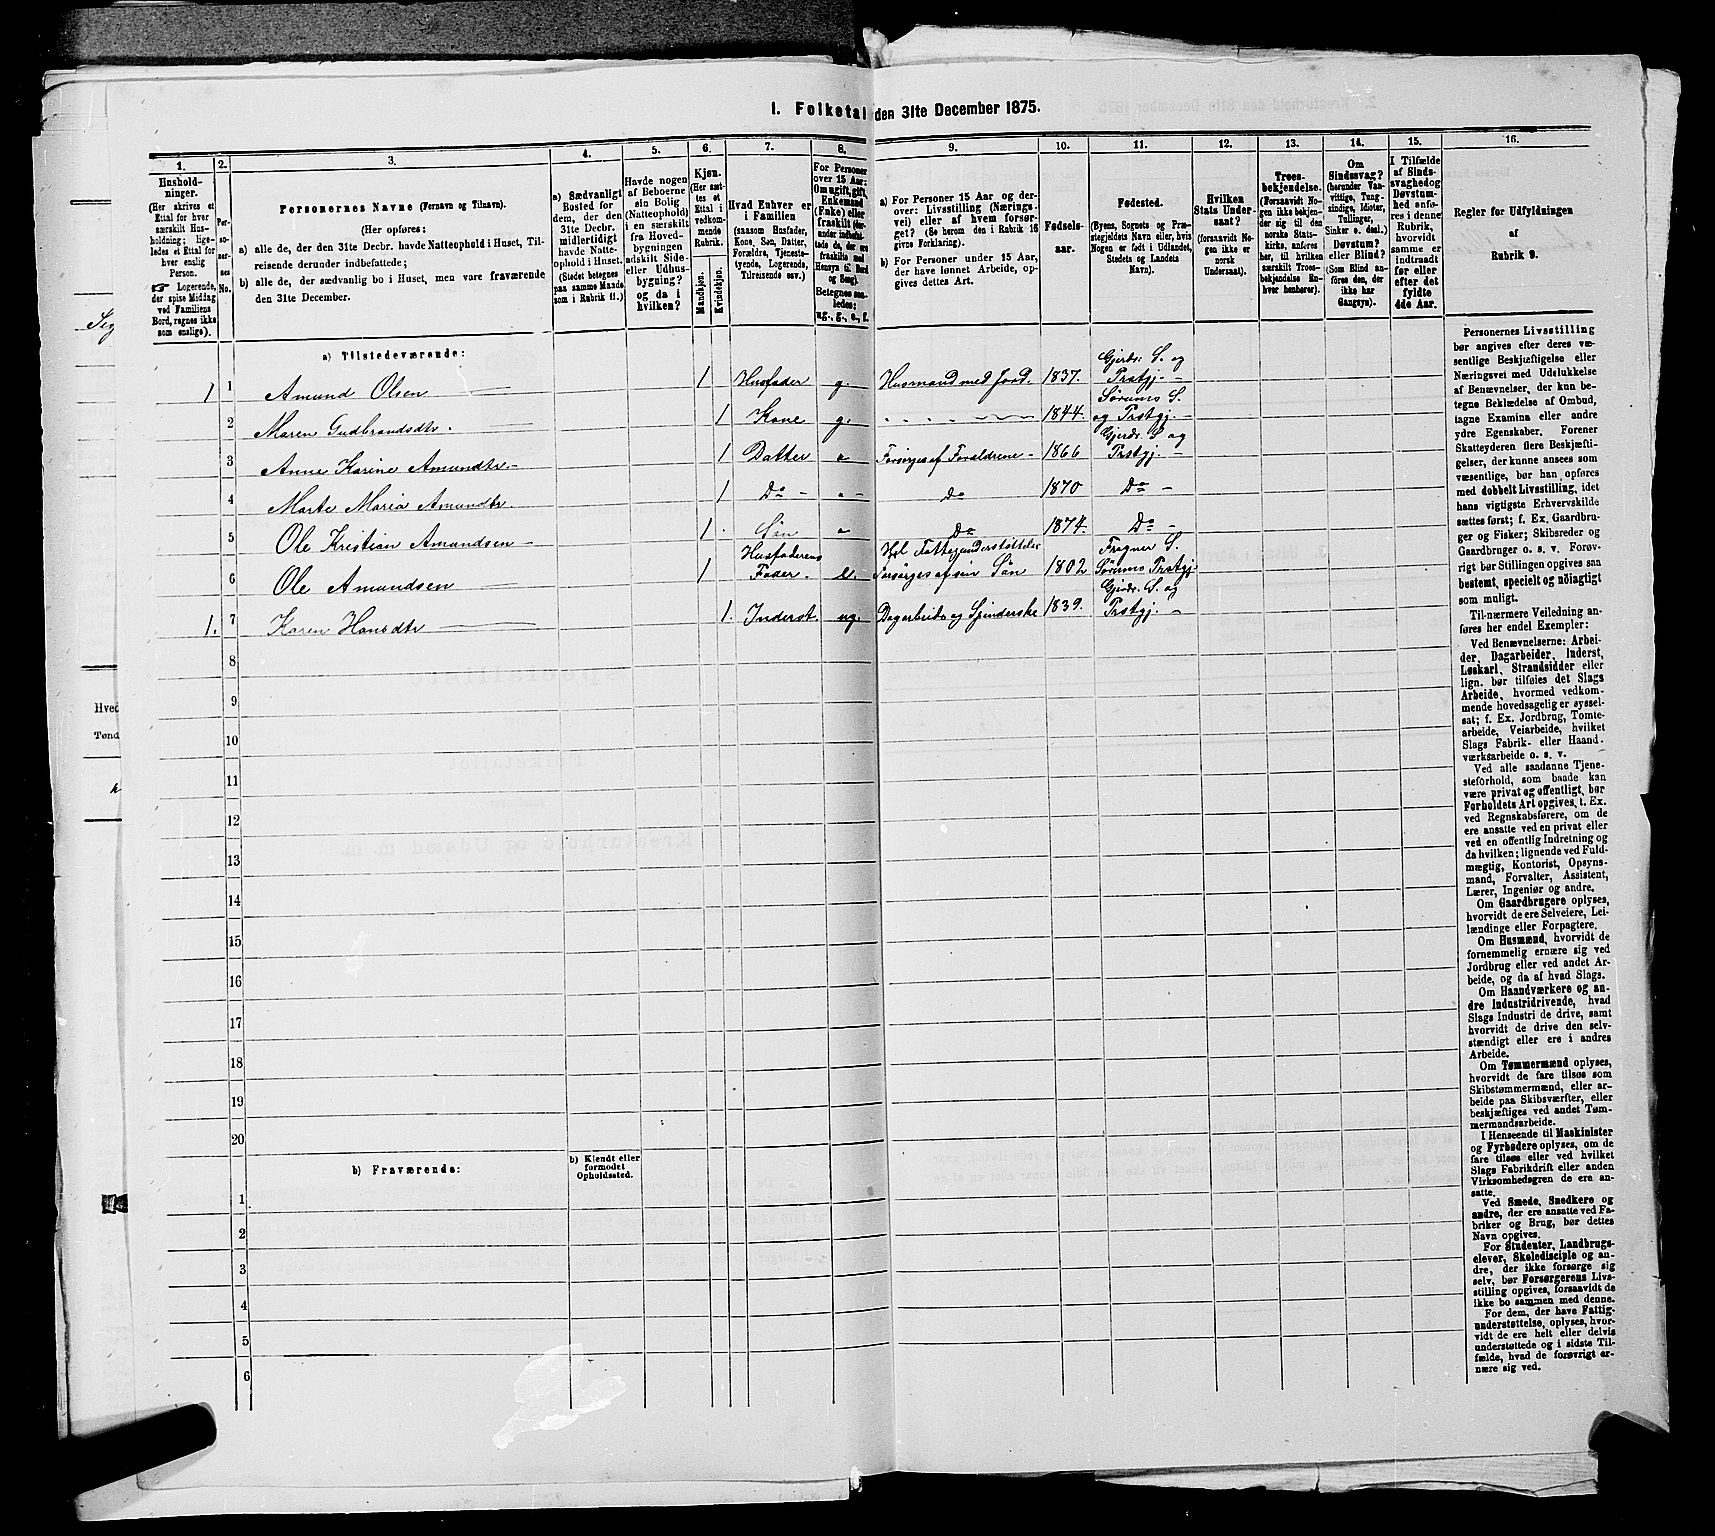 1. Folketal den 31te December 1875.
1. 2. 3. 4. 5. 6. 7. 8. 9. 10. 11. 12. 13. 14. 15. 16.
Hushold-
ninger.
(Her skrives et
Ettal for hver
særskilt Hus-
holdning; lige-
ledes et Ettal
for hver enslig
Person.
☞ Logerende,
der spise Middag
ved Familiens
Bord, regnes ikke
som enslige).
Per-
so-
ner-
nes
No.
Personernes Navne (Fornavn og Tilnavn).
(Her opføres:
a) alle de, der den 31te Decbr. havde Natteophold i Huset, Til-
reisende derunder indbefattede;
b) alle de, der sædvanlig bo i Huset, men vare fraværende
den 31te December.
a) Sædvanligt
Bosted for
dem, der den
31te Decbr.
midlertidigt
havde Natte-
ophold i Huset.
(Stedet betegnes
paa samme Maade
som i Rubrik 11.)
Havde nogen
af Beboerne
sin Bolig
(Natteophold)
i en særskilt
fra Hoved-
bygningen
adskilt Side-
eller Udhus-
bygning?
og da i
hvilken?
Kjøn.
(Her sæt-
tes et
Ettal i
vedkom-
mende
Rubrik.
Mandkjøn.
Kvindekjøn.
Hvad Enhver er
i Familien
(saasom Husfader,
Kone, Søn, Datter,
Forældre, Tjeneste-
tyende, Logerende,
Tilreisende osv.)
For Personer
over 15 Aar:
Om ugift, gift,
Enkemand
(Enke) eller
fraskilt (her-
under indbefat-
tede de, der ere
fraskilte med
Hensyn til Bord
og Seng).
Betegnes saa-
ledes:
ug., g., e., f.
a) For Personer 15 Aar og der-
over: Livsstilling (Nærings-
vei) eller af hvem forsør-
get? (Se herom den i Rubrik 16
givne Forklaring).
b) For Personer under 15 Aar,
der have lønnet Arbeide, op-
gives dettes Art.
Fødsels-
aar.
Fødested.
(Byens, Sognets og Præ-
stegjeldets Navn eller, hvis
Nogen er født i Udlandet,
Stedets og Landets
Navn).
Hvilken
Stats Under-
saat?
(forsaavidt No-
gen ikke er
norsk
Undersaat).
Troes-
bekjendelse.
(Forsaavidt No-
gen ikke bekjen-
der sig til den
norske Stats-
kirke, anføres
her, til hvilken
særskilt Troes-
bekjendelse En-
hver henhører).
Om
Sindssvag?
(herunder Van-
vittige, Tung-
sindige, Idioter,
Tullinger,
Sinker o. desl.)
Døvstum?
eller Blind?
(Som Blind an-
føres den, der
ikke har
Gangsyn).
I Tilfælde
af Sinds-
svaghed og
Døvstum-
hed anfø-
res i denne
Rubrik,
hvorvidt
samme er
indtraadt
før eller
efter det
fyldte
4de Aar.
Regler for Udfyldningen
af
Rubrik 9.
a) Tilstedeværende:
1 1 Amund Olsen 1 Husfader g. Husmand med Jord. 1837. Gjerdr. S. og Prstgj. —
2 Maren Gudbrandsdtr. 1 Kone g. " " " 1844. Sørums S. og Prstgj. —
3 Anne Karine Amundtr — 1 Datter " Forsørges af Forældrene — 1866 Gjerdr. S og Prstgj. —
4 Marte Maria Amundtr 1 Do — " — Do 1870 Do —
5 Ole Kristian Amundsen — 1. Søn " Do 1874. Do —
6 Ole Amundsen 1 Husfaderens Fader. e. Forsørges af sin Søn 1802 Frogner S. Sørums Prstgj
1. 7 Karen Hansdtr 1. Inderst. ug. Dagarbeide og Spinderske 1839. Gjerdr. S. og Prstgj. —
8
9
10
11
12
13
14
15
16
17
18
19
20
b) Fraværende:
b) Kjendt eller
formodet
Opholdssted.
1
2
3
4
5
6
Personernes Livsstilling
bør angives efter deres væ-
sentlige Beskjæftigelse eller
Næringsvei med Udelukkelse
af Benævnelser, der kun be-
tegne Beklædelse af Ombud,
tagne Examina eller andre
ydre Egenskaber. Forener
Skatteyderen flere Beskjæfti-
gelser, der kunne ansees som
væsentlige, bør han opføres
med dobbelt Livsstilling, idet
hans vigtigste Erhvervskilde
sættes først; f. Ex. Gaardbru-
ger og Fisker; Skibsreder og
Gaardbruger o. s. v. Forøv-
rigt bør Stillingen opgives saa
bestemt, specielt og nøiagtigt
som muligt.
Til nærmere Veiledning an-
føres her endel Exempler:
Ved Benævnelserne: Arbei-
der, Dagarbeider, Inderst,
Løskarl, Strandsidder eller
lign. bør tilføies det Slags
Arbeide, hvormed vedkom-
mende hovedsagelig er syssel-
sat; f. Ex. Jordbrug, Tomte-
arbeide, Veiarbeide, hvilket
Slags Fabrik- eller Haand-
værksarbeide o. s. v.
Ved alle saadanne Tjene-
steforhold, som baade kan
være privat og offentligt, bør
Forholdets Art opgives, t. Ex.
ved Regnskabsførere, om de
ere ansatte ved en privat eller
ved en offentlig Indretning og
da hvilken; lignende ved Fuld-
mægtig, Kontorist, Opsyns-
mand, Forvalter, Assistent,
Lærer, Ingeniør og andre.
Om Gaardbrugere oplyses,
hvorvidt de ere Selveiere, Lei-
lændinge eller Forpagtere.
Om Husmænd, hvorvidt de
fornemmelig ernære sig ved
Jordbrug eller ved andet Ar-
beide, og da af hvad Slags.
Om Haandværkere og an-
dre Industridrivende, hvad
Slags Industri de drive, samt
hvorvidt de drive den selv-
stændigt eller ere i andres
Arbeide.
Om Tømmermænd oplyses,
hvorvidt de fare tilsøs som
Skibstømmermænd, eller ar-
beide paa Skibsværfter, eller
beskjæftiges ved andet Tøm-
mermandsarbeide.
I Henseende til Maskinister
og Fyrbødere oplyses, om de
fare tilsøs eller ved hvilket
Slags Fabrikdrift eller anden
Virksomhedsgren de ere an-
satte.
Ved Smede, Snedkere og
andre, der ere ansatte ved Fa-
briker og Brug, bør dettes
Navn opgives.
For Studenter, Landbrugs-
elever, Skoledisciple og an-
dre, der ikke forsørge sig
selv, bør Forsørgerens Livs-
stilling opgives, forsaavidt de
ikke bo sammen med denne.
For dem, der have Fattig-
understøttelse, oplyses, hvor-
vidt de ere helt eller delvis
understøttede og i sidste Til-
fælde, hvad de forøvrigt er-
nære sig ved.
Hved
Tønd